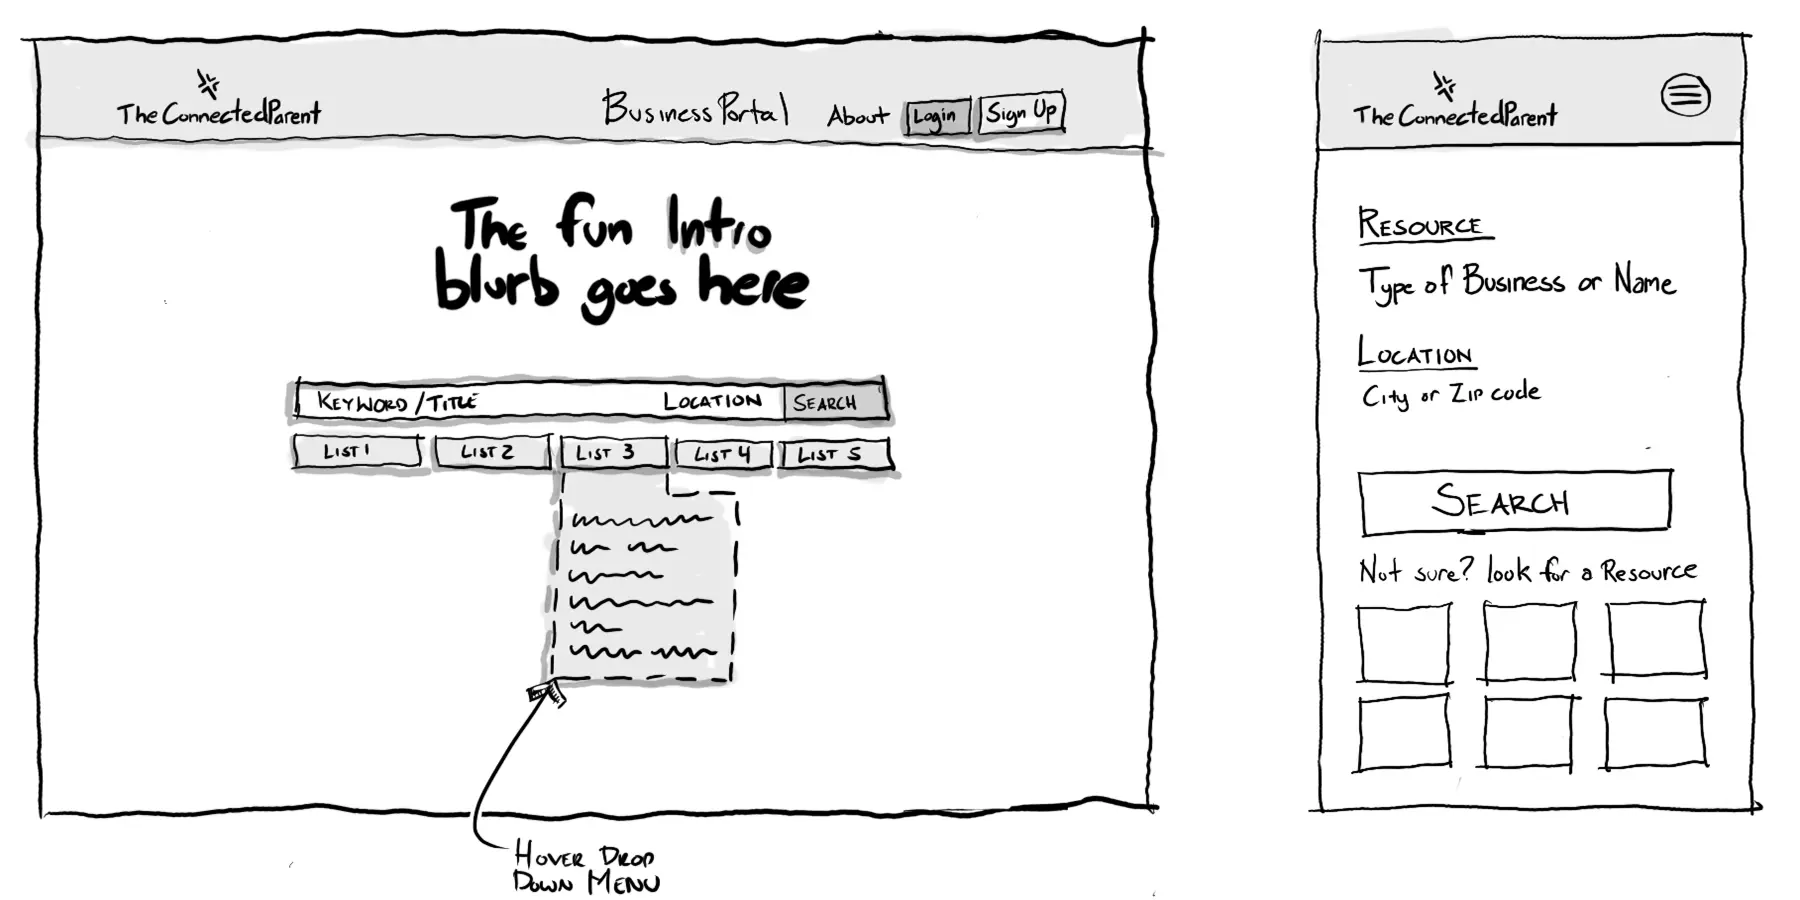 The ConnectedParent
Business Portal
About
Login
Sign Up
The fun Intro
blurb goes here
KEYWORD/TITLE
LOCATION
SEARCH
LIST 1
LIST 2
LIST 3
LIST 4
LIST 5
HOVER DROP
DOWN MENU
The ConnectedParent
RESOURCE
Type of Business or Name
LOCATION
City or Zip code
SEARCH
Not sure? look for a Resource